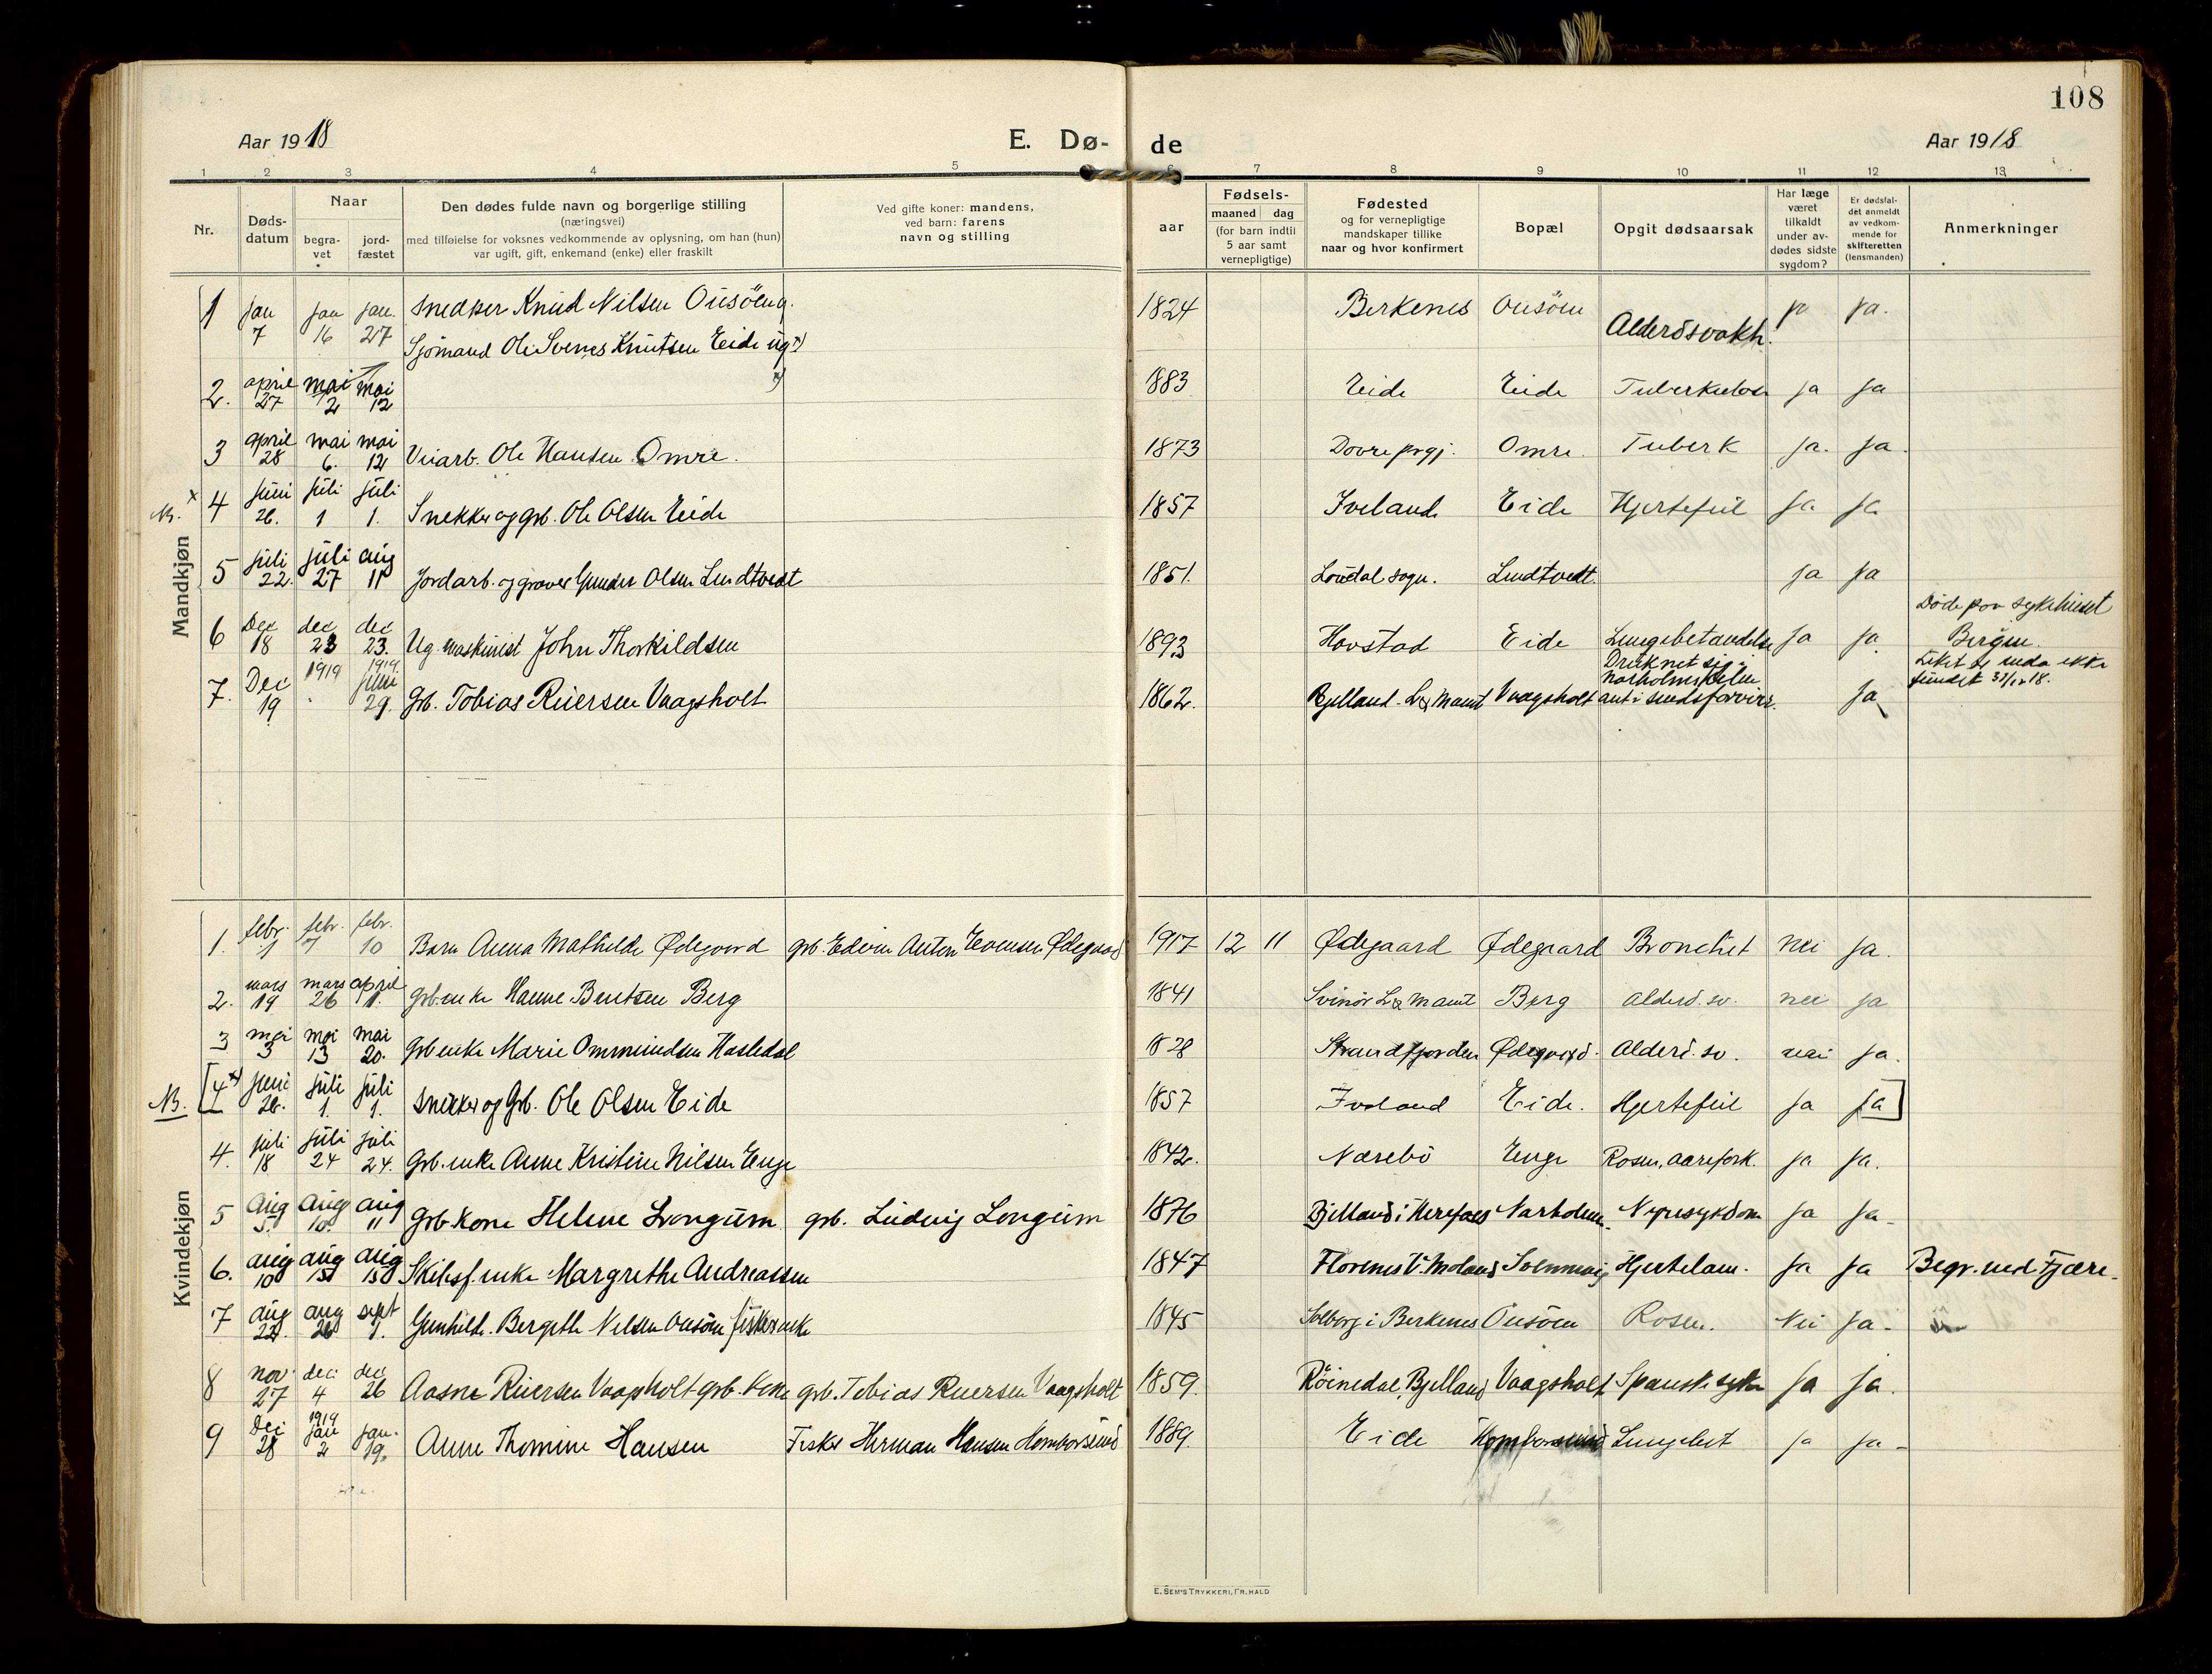 108
Aar 1918 E. Dø- de Aar 1918
1 2 3 4 5 6 7 8 9 10 11 12 13
Nr. Døds-datum Naar begra-vet jord-fæstet Den dødes fulde navn og borgerlige stilling (næringsvei) med tilføielse for voksnes vedkommende av oplysning, om han (hun) var ugift, gift, enkemand (enke) eller fraskilt Ved gifte koner: mandens, ved barn: farens navn og stilling aar Fødsels- maaned dag (for barn indtil 5 aar samt vernepligtige) Fødested og for vernepligtige mandskaper tillike naar og hvor konfirmert Bopæl Opgit dødsaarsak Har læge været tilkaldt under av-dødes sidste sygdom? Er dødsfal-det anmeldt av vedkom-mende for skifteretten (lensmanden) Anmerkninger
Mandkjøn
1 Jan 7 jan 16 jan. 27 Snedker Knud Nilsen Ousöen g. 1824 Berkenes Ousöen Alderdsvakh. ja ja.
Sjömand Ole Svenes Knutsen Eide ug x)
2. april 27 mai 2 mai 12 x) 1883 Eide Eide Tuberkulose ja ja
3 april 28 mai 6. mai 12 Veiarb. Ole Hansen Omre. 1873 Dovre prgj. Omre. Tuberk ja. ja.
NB. x 4 juni 26. juli 1 juli 1. Snekker og grb. Ole Olsen Eide 1857 Iveland Eide Hjertefeil ja ja
5 juli 22. juli 27 aug 11 Jordarb. og graver Gunder Olsen Lundtvedt 1851. Loudal sogn. Lundtvedt ja ja
6 Dec 18 dec 23 dec 23. Ug. maskinist John Thorkildsen 1893 Hovstad Eide Lungebetændelse ja ja Døde paa sykehuset Bergen.
7. Dec 19 1919 1919 juni 29. Grb. Tobias Reiersen Vaagsholt 1862. Bjelland. L. & M. amt Vaagsholt Druknet sig i Norholmskilen ant. i sindsforvirr. ja Liket er enda ikke fundet 31/12 18.
Kvindekjøn
1. febr. 1 febr. 7 febr. 10 Barn Anna Mathilde Ødegaard grb. Edvin Anton Evensen Ødegaard 1917 12 11 Ødegaard Ødegaard Bronchit nei ja.
2. mars 19 mars 26 april 1. Grb.enke Hanne Bentsen Berg 1841 Svinör L & M amt Berg Alderd. sv. nei ja
3 mai 3 mai 13 mai 20. Grb enke Marie Ommundsen Hasledal 1828 Strandfjorden Ødegaard. Alderd. sv. nei ja.
NB. [4 x) juni 26. juli 1. juli 1. Snekker og Grb. Ole Olsen Eide 1857 Iveland Eide. Hjertefeil ja ja]
4. juli 18 juli 24 juli 24. Grb. enke Anne Kristine Nilsen Enge 1842. Nærebö Enge Rosen, aarefork. ja ja.
5 aug 5. aug 10. aug 11 Grb kone Helene Longum grb. Ludvig Longum 1876 Bjelland i Herefoss Norholmen. Nyresykdom ja ja
6. aug 10 aug 15 aug 15 Skibsf. enke Margrethe Andreassen 1847 Florenes V. Moland Hjertelam. ja ja Begr. ved Fjære.
7 aug 22. aug 26 sept 1. Gunhild. Bergitte Nilsen Ousöen fiskerenke 1845 Solborg i Berkenes Ousöen Rosen. Nei ja
8 nov. 27 dec. 4 dec 26 Aasne Reiersen Vaagsholt grb. kone grb. Tobias Reiersen Vaagsholt 1859. Röinedal, Bjelland Vaagsholt Spanske syken ja ja.
9 Dec 28 1919 jan 2 jan. 19. Anne Thomine Hansen Fisker Herman Hansen Homborsund 1889. Eide Homborsund Lungebet ja ja
E. SEM'S TRYKKERI, FR. HALD